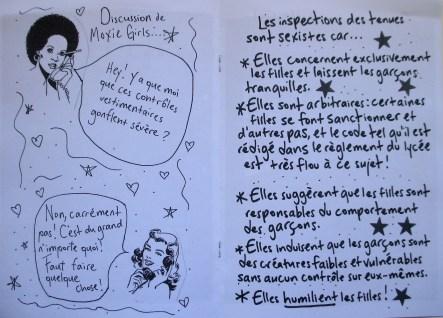 Discussion de
Moxie Girls...
Hey! Y a que moi
que ces contrôles
vestimentaires
gonflent sévère ?
Non, carrément
pas! C'est du grand
n'importe quoi!
Faut faire
quelque
chose!
Les inspections des tenues
sont sexistes car...
* Elles concernent exclusivement
les filles et laissent les garçons
tranquilles.
* Elles sont arbitraires : certaines
filles se font sanctionner et
d'autres pas, et le code tel qu'il est
rédigé dans le règlement du lycée
est très flou à ce sujet !
* Elles suggèrent que les filles sont
responsables du comportement
des garçons.
* Elles induisent que les garçons sont
des créatures faibles et vulnérables
sans aucun contrôle sur eux-mêmes.
* Elles humilient les filles !